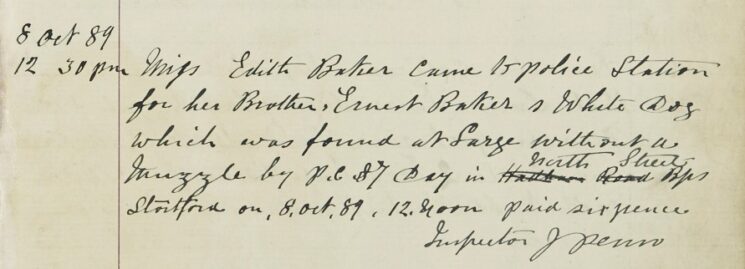 8 Oct 89
12 30 pm Miss Edith Baker Came to police Station
for her Brother, Ernest Baker s White Dog
which was found at Large without a
Muzzle by P.C. 87 Day in North Street Bps
Stortford on, 8, Oct, 89, 12. Noon paid sixpence
Inspector J